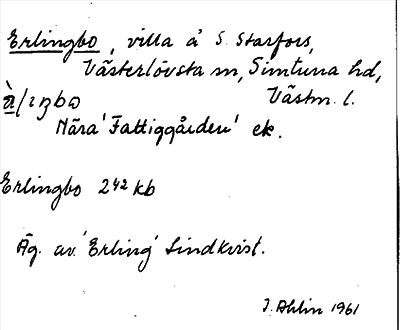 Erlingbo, villa å S. Starfors,
Västerlövsta sn, Simtuna hd,
Västm. l.
Nära 'Fattiggården' ek.
Erlingbo 242 kb
Äg. av 'Erling' Lindkvist.
J. Ahlin 1961